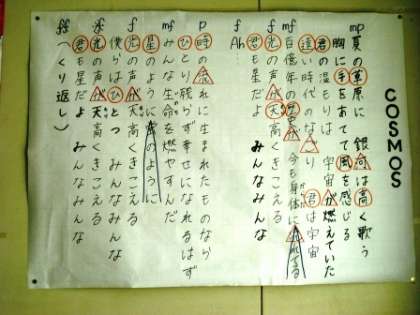 COSMOS
mp 夏の草原に 銀河は高く歌う
胸に手をあてて 風を感じる
君の温もりは 宇宙が燃えていた
mf 遠い時代のなごり 君は宇宙
mf 百億年の歴史が 今も身体に流れてる
f 光の声が天高くきこえる
君も星だよ みんなみんな
f Ah
p 時の流れに生まれたものなら
ひとり残らず幸せになれるはず
mf みんな生命を燃やすんだ
星のように 蛍のように
f 光の声が天高くきこえる
僕らはひとつ みんなみんな
光の声が天高くきこえる
君も星だよ みんなみんな
ff (くり返し)